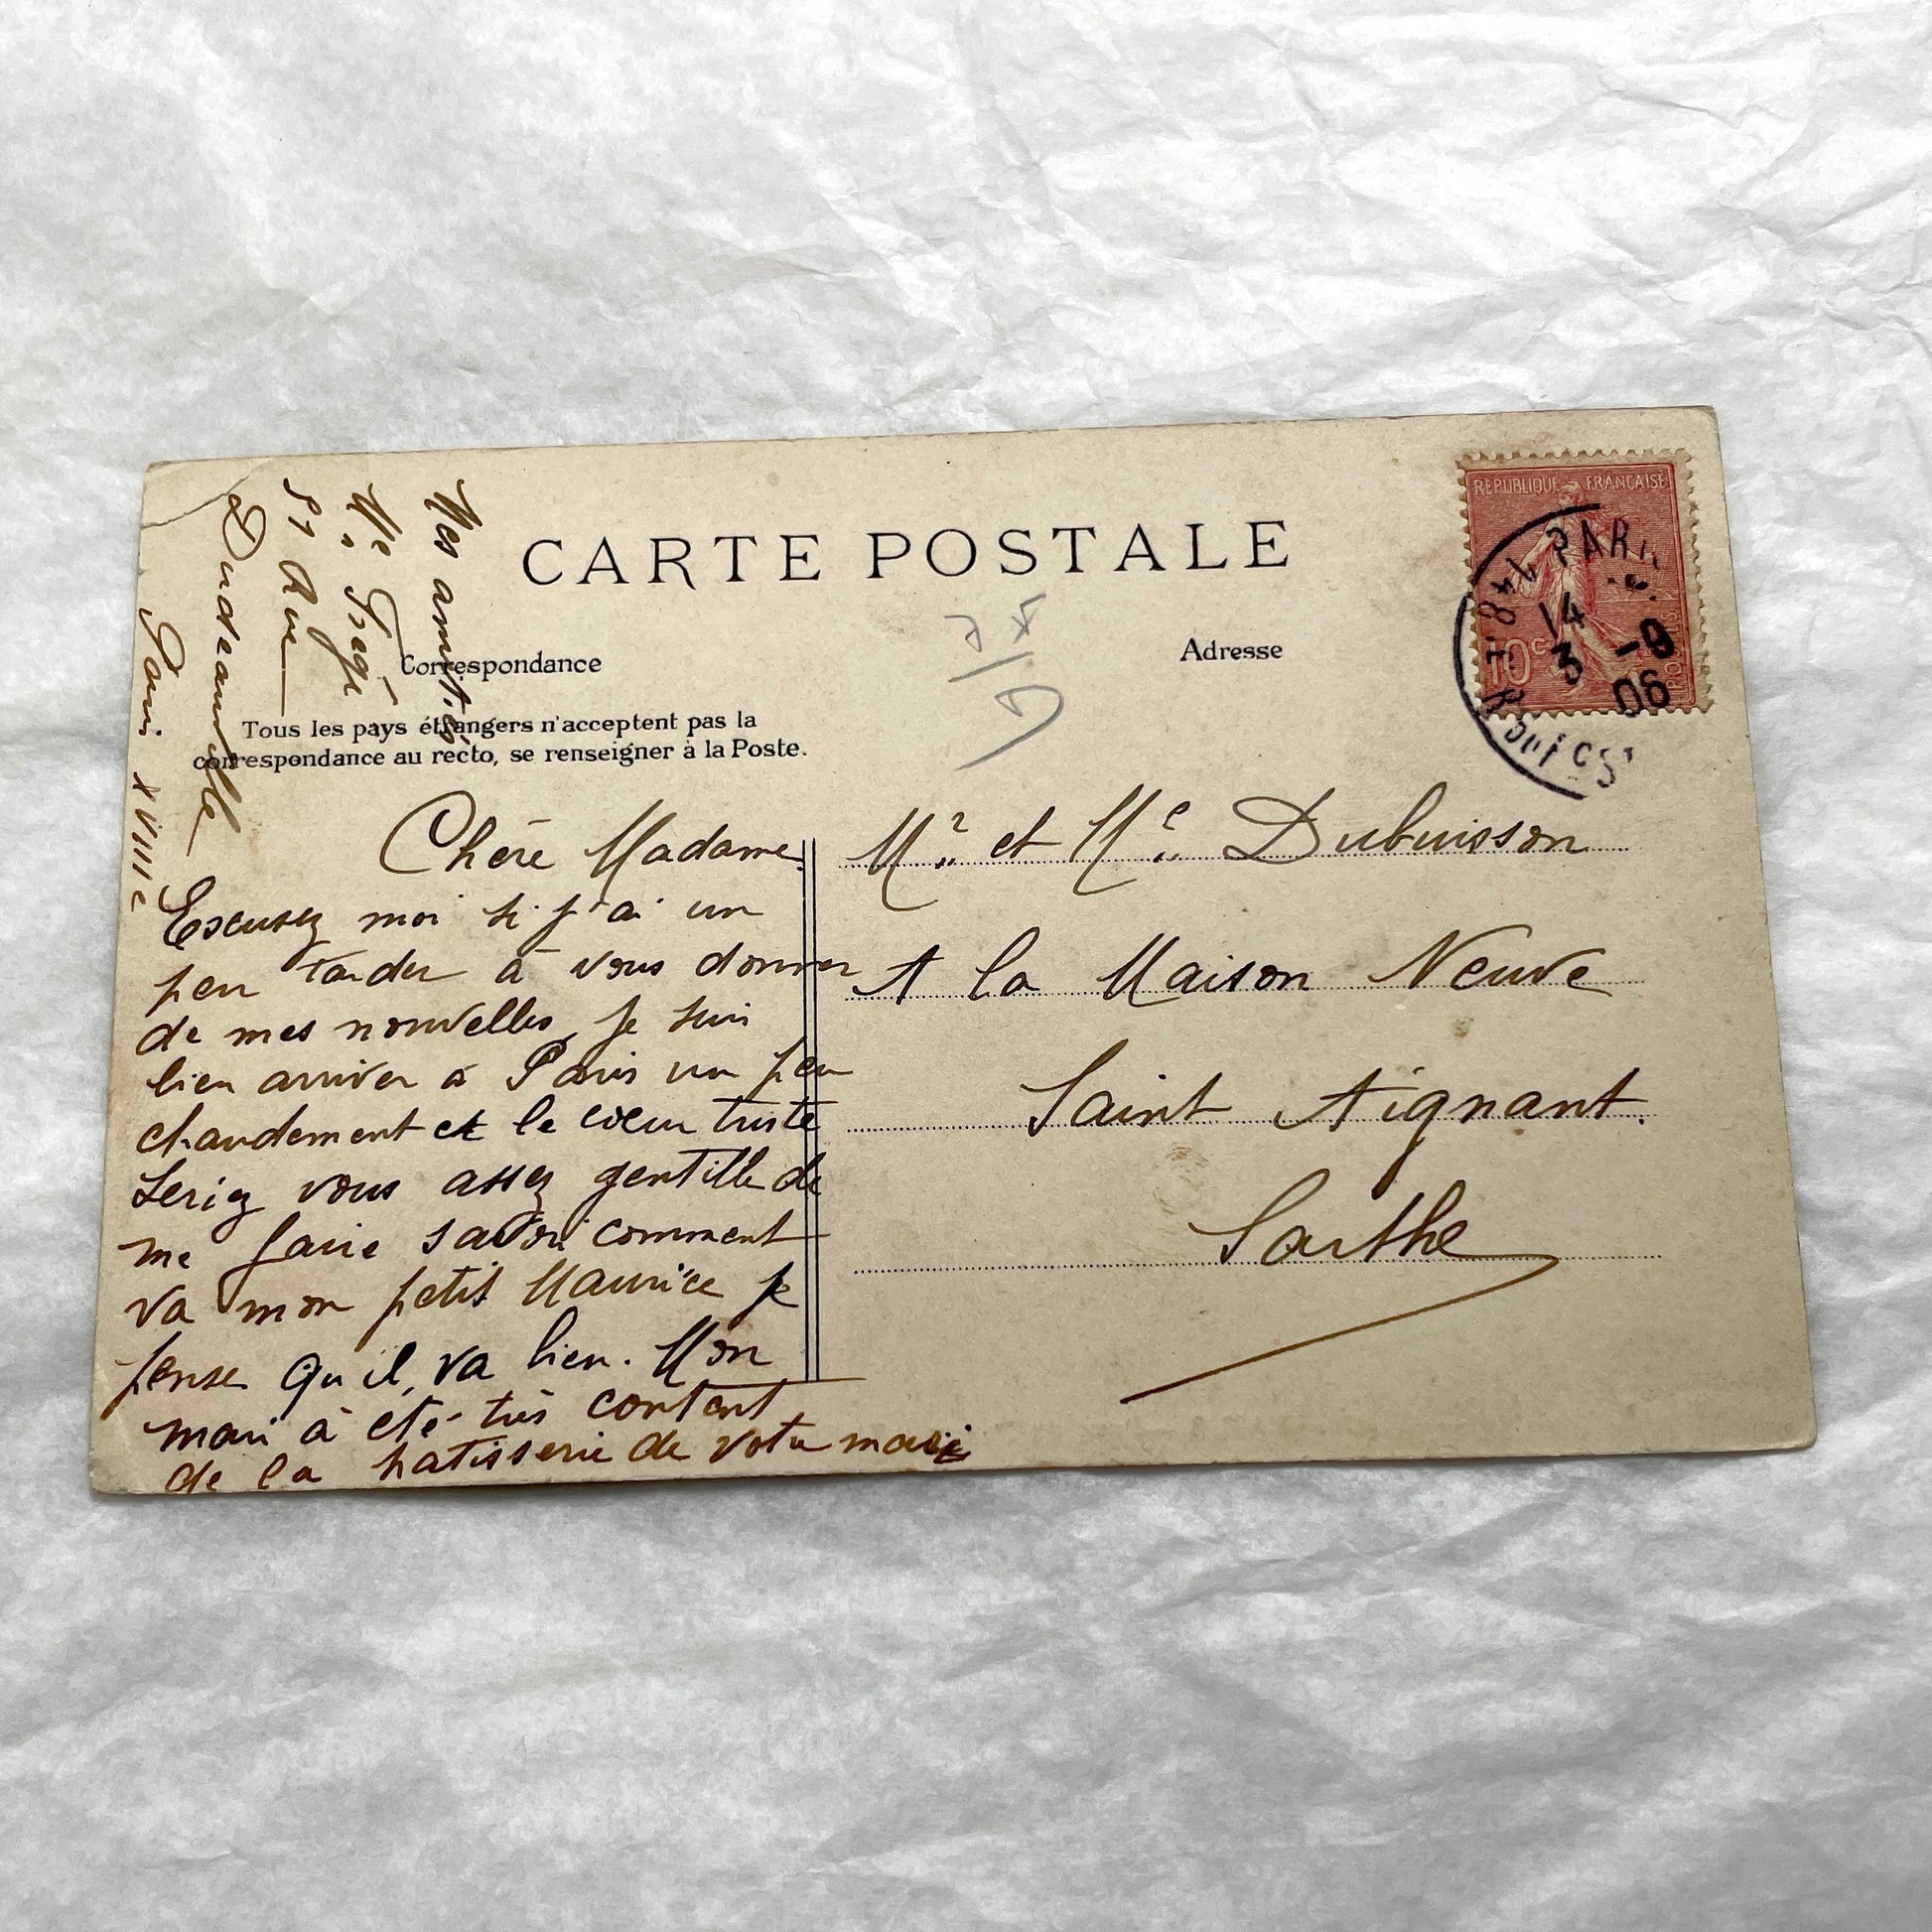 CARTE POSTALE
Correspondance
Adresse
Tous les pays étrangers n'acceptent pas la
correspondance au recto, se renseigner à la Poste.
REPUBLIQUE FRANÇAISE
10c
PARIS
14
3 -9
06
Chère Madame
Excusez moi si j'ai un
peu tarder à vous donner
de mes nouvelles, je suis
bien arriver à Paris un peu
chaudement et le cœur triste
Seriez vous assez gentille de
me faire savoir comment
va mon petit Maurice je
pense qu'il va bien. Mon
mari à été très content
de la patisserie de votre mari
Mes amitiés
Me
51 Rue
Dudeauville
Paris XVIIIe
Mr et Me Dubuisson
A la Maison Neuve
Saint Aignant.
Sarthe